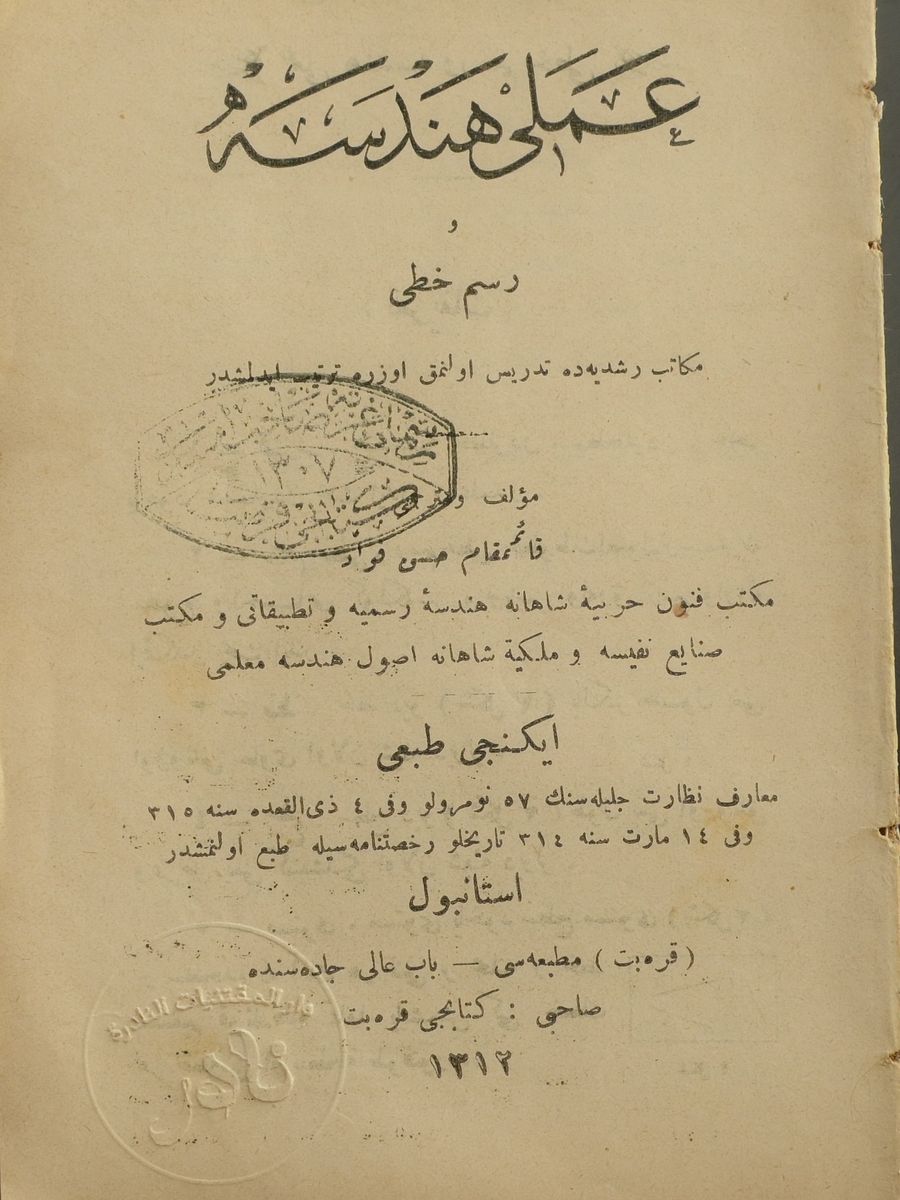 عملی هندسه
و
رسم خطی
مکاتب رشدیه‌ده تدریس اولنمق اوزره ترتیب ایدلمشدر
مؤلف و مترجمی
قائممقام حسن فواد
مکتب فنون حربیهٔ شاهانه هندسهٔ رسمیه و تطبیقاتی و مکتب
صنایع نفیسه و ملکیهٔ شاهانه اصول هندسه معلمی
ایکنجی طبعی
معارف نظارت جلیله‌سنك ٥٧ نومرولو وفی ٤ ذی‌القعده سنه ٣١٥
وفی ١٤ مارت سنه ٣١٤ تاریخلو رخصتنامه‌سیله طبع اولنمشدر
استانبول
( قره‌بت ) مطبعه‌سی — باب عالی جاده‌سنده
صاحبی : کتابجی قره‌بت
١٣١٢
١٣٠٧
دار المقتنيات النادرة
نادر